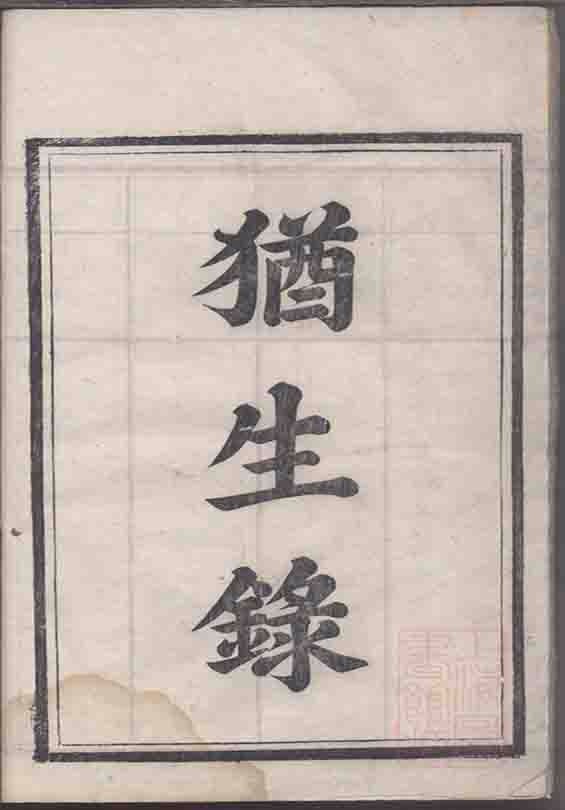 猶生錄